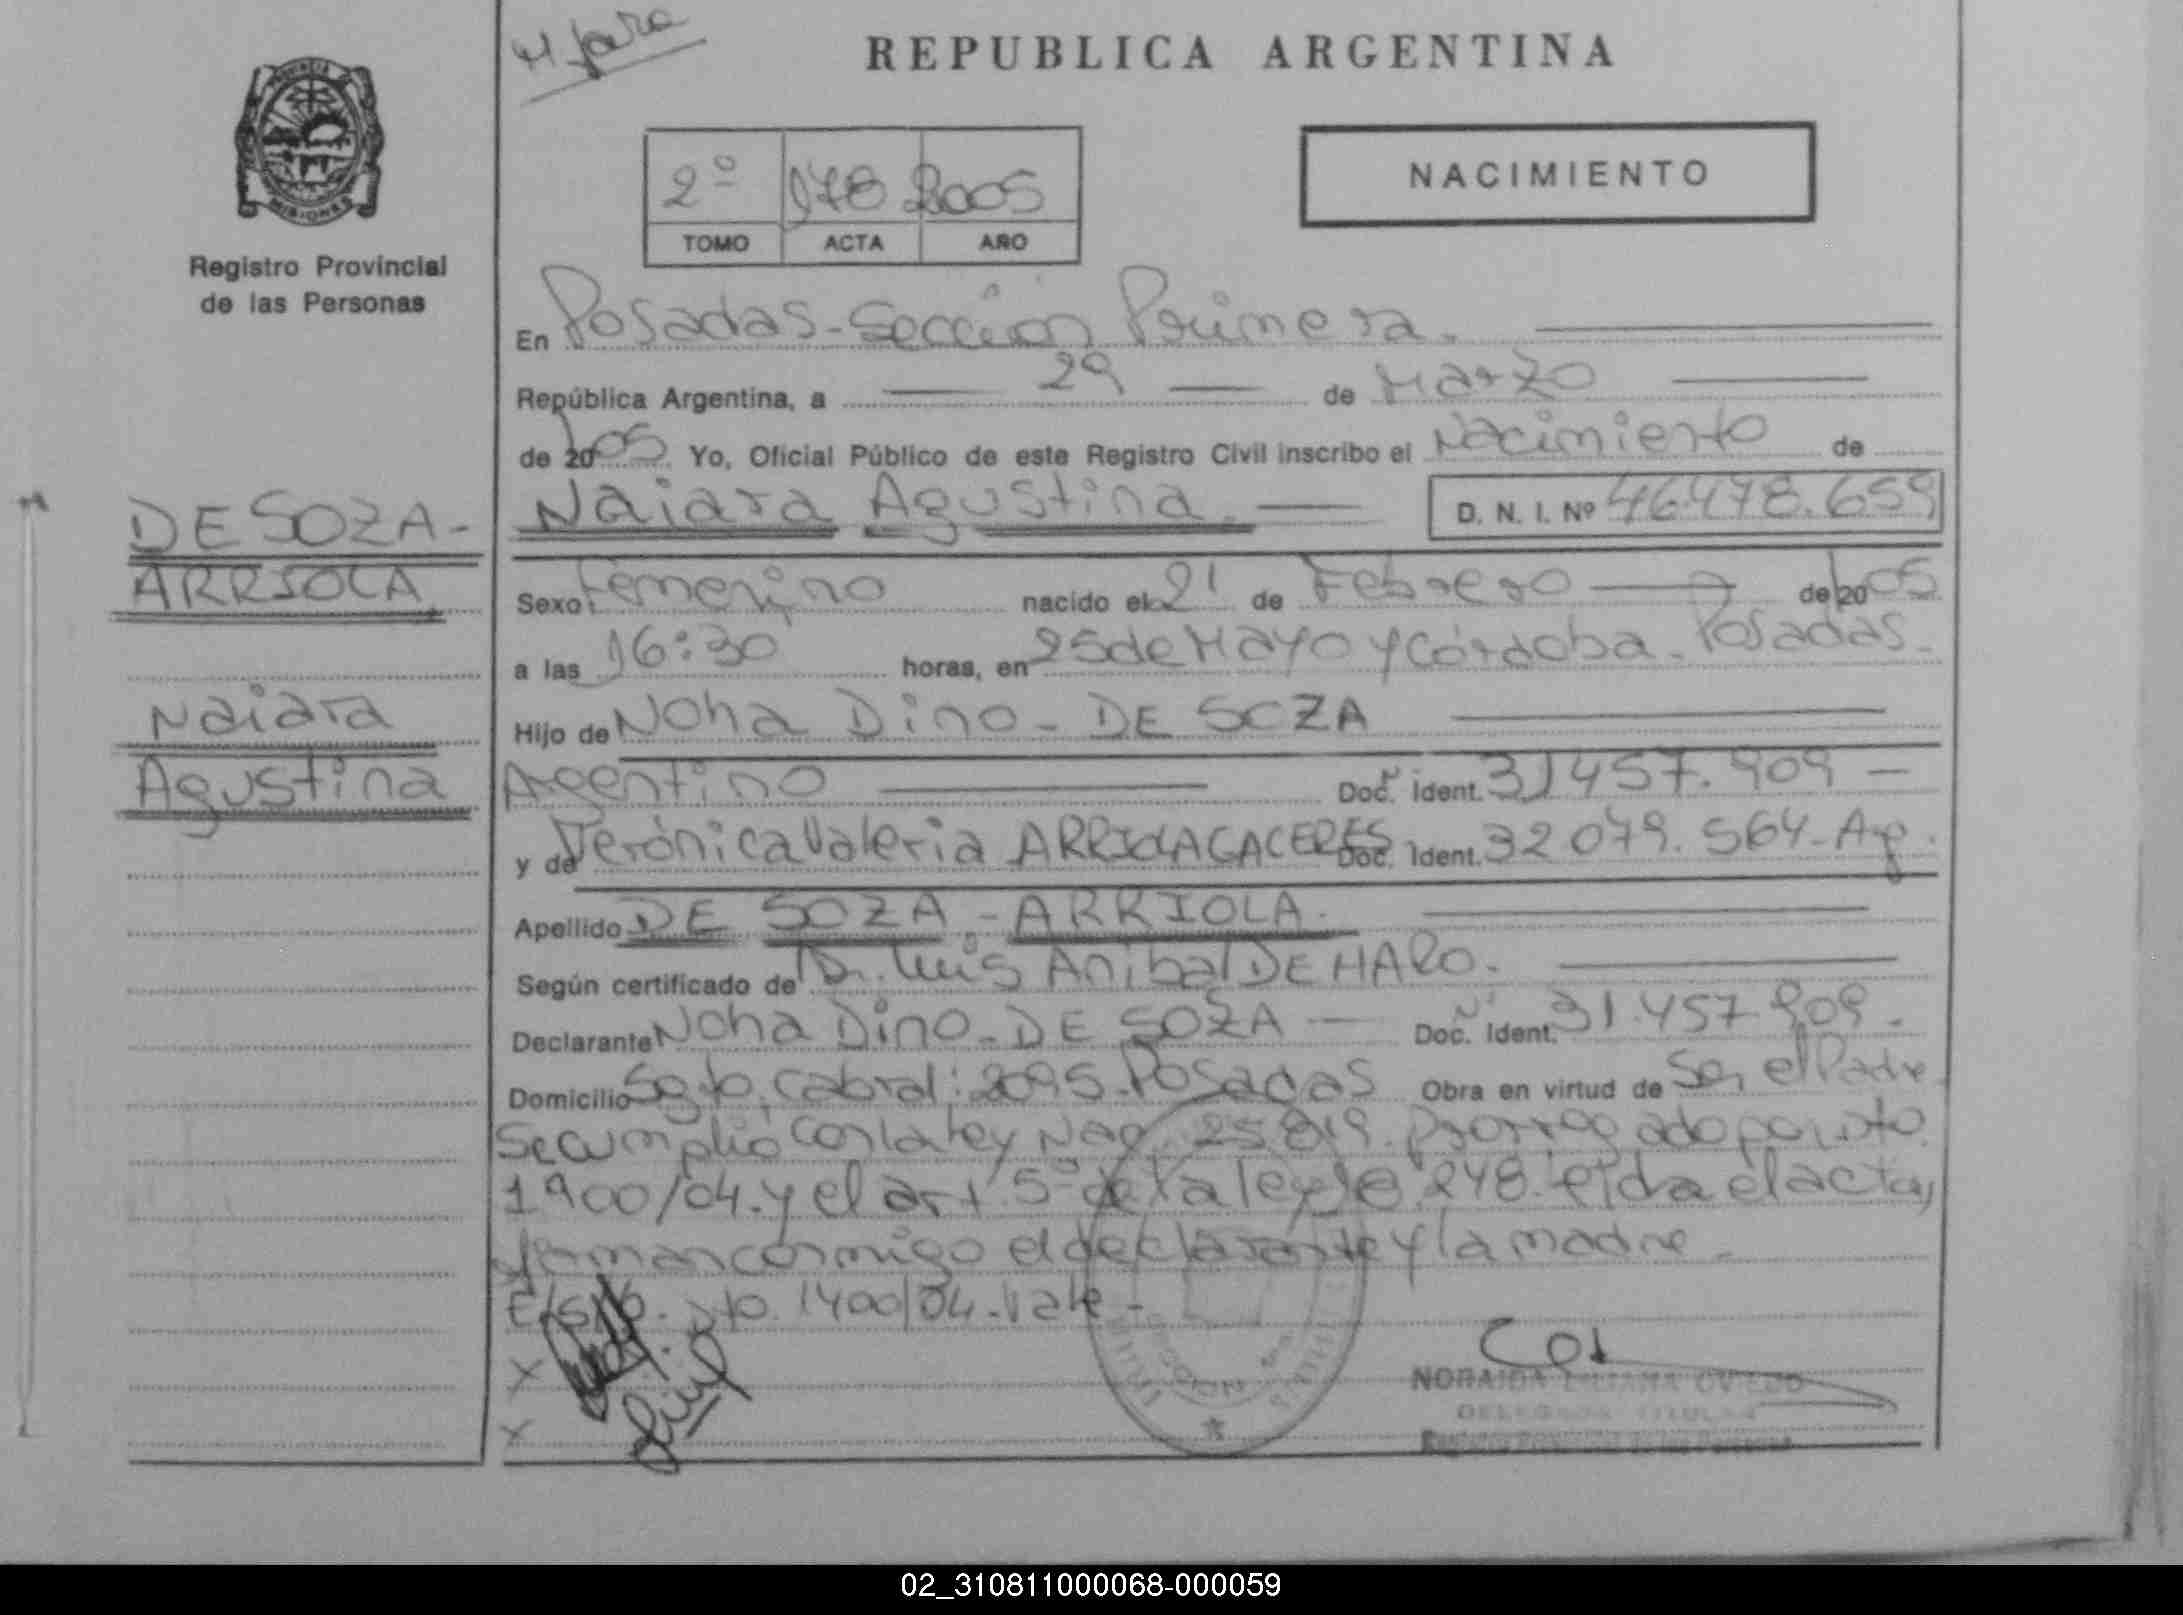 H fara
REPUBLICA ARGENTINA
PROVINCIA
MISIONES
Registro Provincial
de las Personas
2º 178 2005
TOMO ACTA AÑO
NACIMIENTO
En Posadas - Sección Primera.
República Argentina, a 29 de Marzo
de 2005 Yo, Oficial Público de este Registro Civil inscribo el Nacimiento de
Naiara Agustina. D. N. I. Nº 46.478.659
DE SOZA -
ARRIOLA
Naiara
Agustina
Sexo: Femenino nacido el 21 de Febrero de 2005
a las 16:30 horas, en 25 de Mayo y Córdoba - Posadas -
Hijo de Noha Dino - DE SOZA
Argentino Doc. Ident. Nº 31457.909 -
y de Verónica Valeria ARRIOLA CACERES Doc. Ident. 32 079. 564 - Ag.
Apellido DE SOZA - ARRIOLA.
Según certificado de Dr. Luis Anibal DE HARO.
Declarante Noha Dino - DE SOZA - Doc. Ident. Nº 31.457.909.
Domicilio Sgto. Cabral: 2095 - Posadas Obra en virtud de Ser el Padre
Se cumplió con la ley Nac 25.819. Prorrogado por Dto.
1900/04. y el art 5º de la ley 18.248. leída el acta,
firman conmigo el declarante y la madre -
E/S/R. Dto. 1400/04 - Vale -
X
X
NORAIDA LILIANA OVIEDO
DELEGADA TITULAR
Registro Provincial de las Personas
02_310811000068-000059